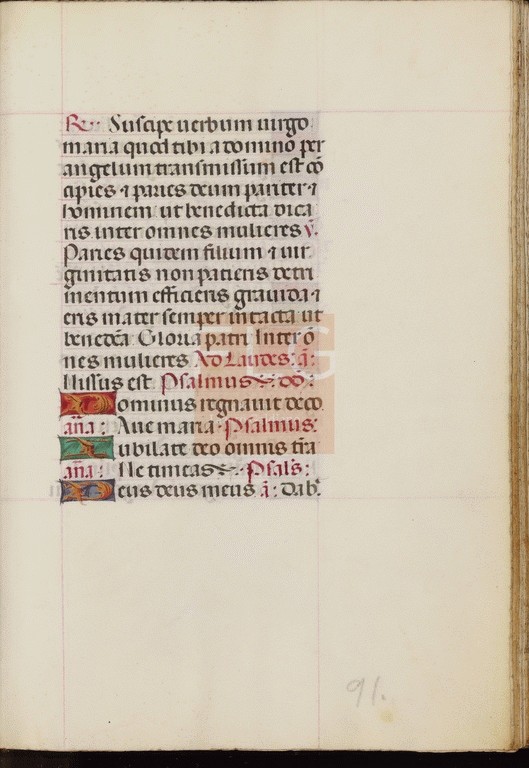 R. Suscipe uerbum uirgo
maria quod tibi a domino per
angelum transmissum est cō
cipies ⁊ paries deum pariter ⁊
hominem ut benedicta dica
ris inter omnes mulieres v.
Paries quidem filium ⁊ uir
ginitatis non pacieris detri
mentum efficieris grauida ⁊
eris mater semper intacta ut
benedc̄a Gloria patri Inter ō
nes mulieres Ad Laudes: ā:
Missus est Psalmus dd:
Dominus regnauit deco
aña: Aue maria Psalmus:
Iubilate deo omnis t̄ra
aña: Ne timeas Psals:
Deus deus meus ā: Dab
91.